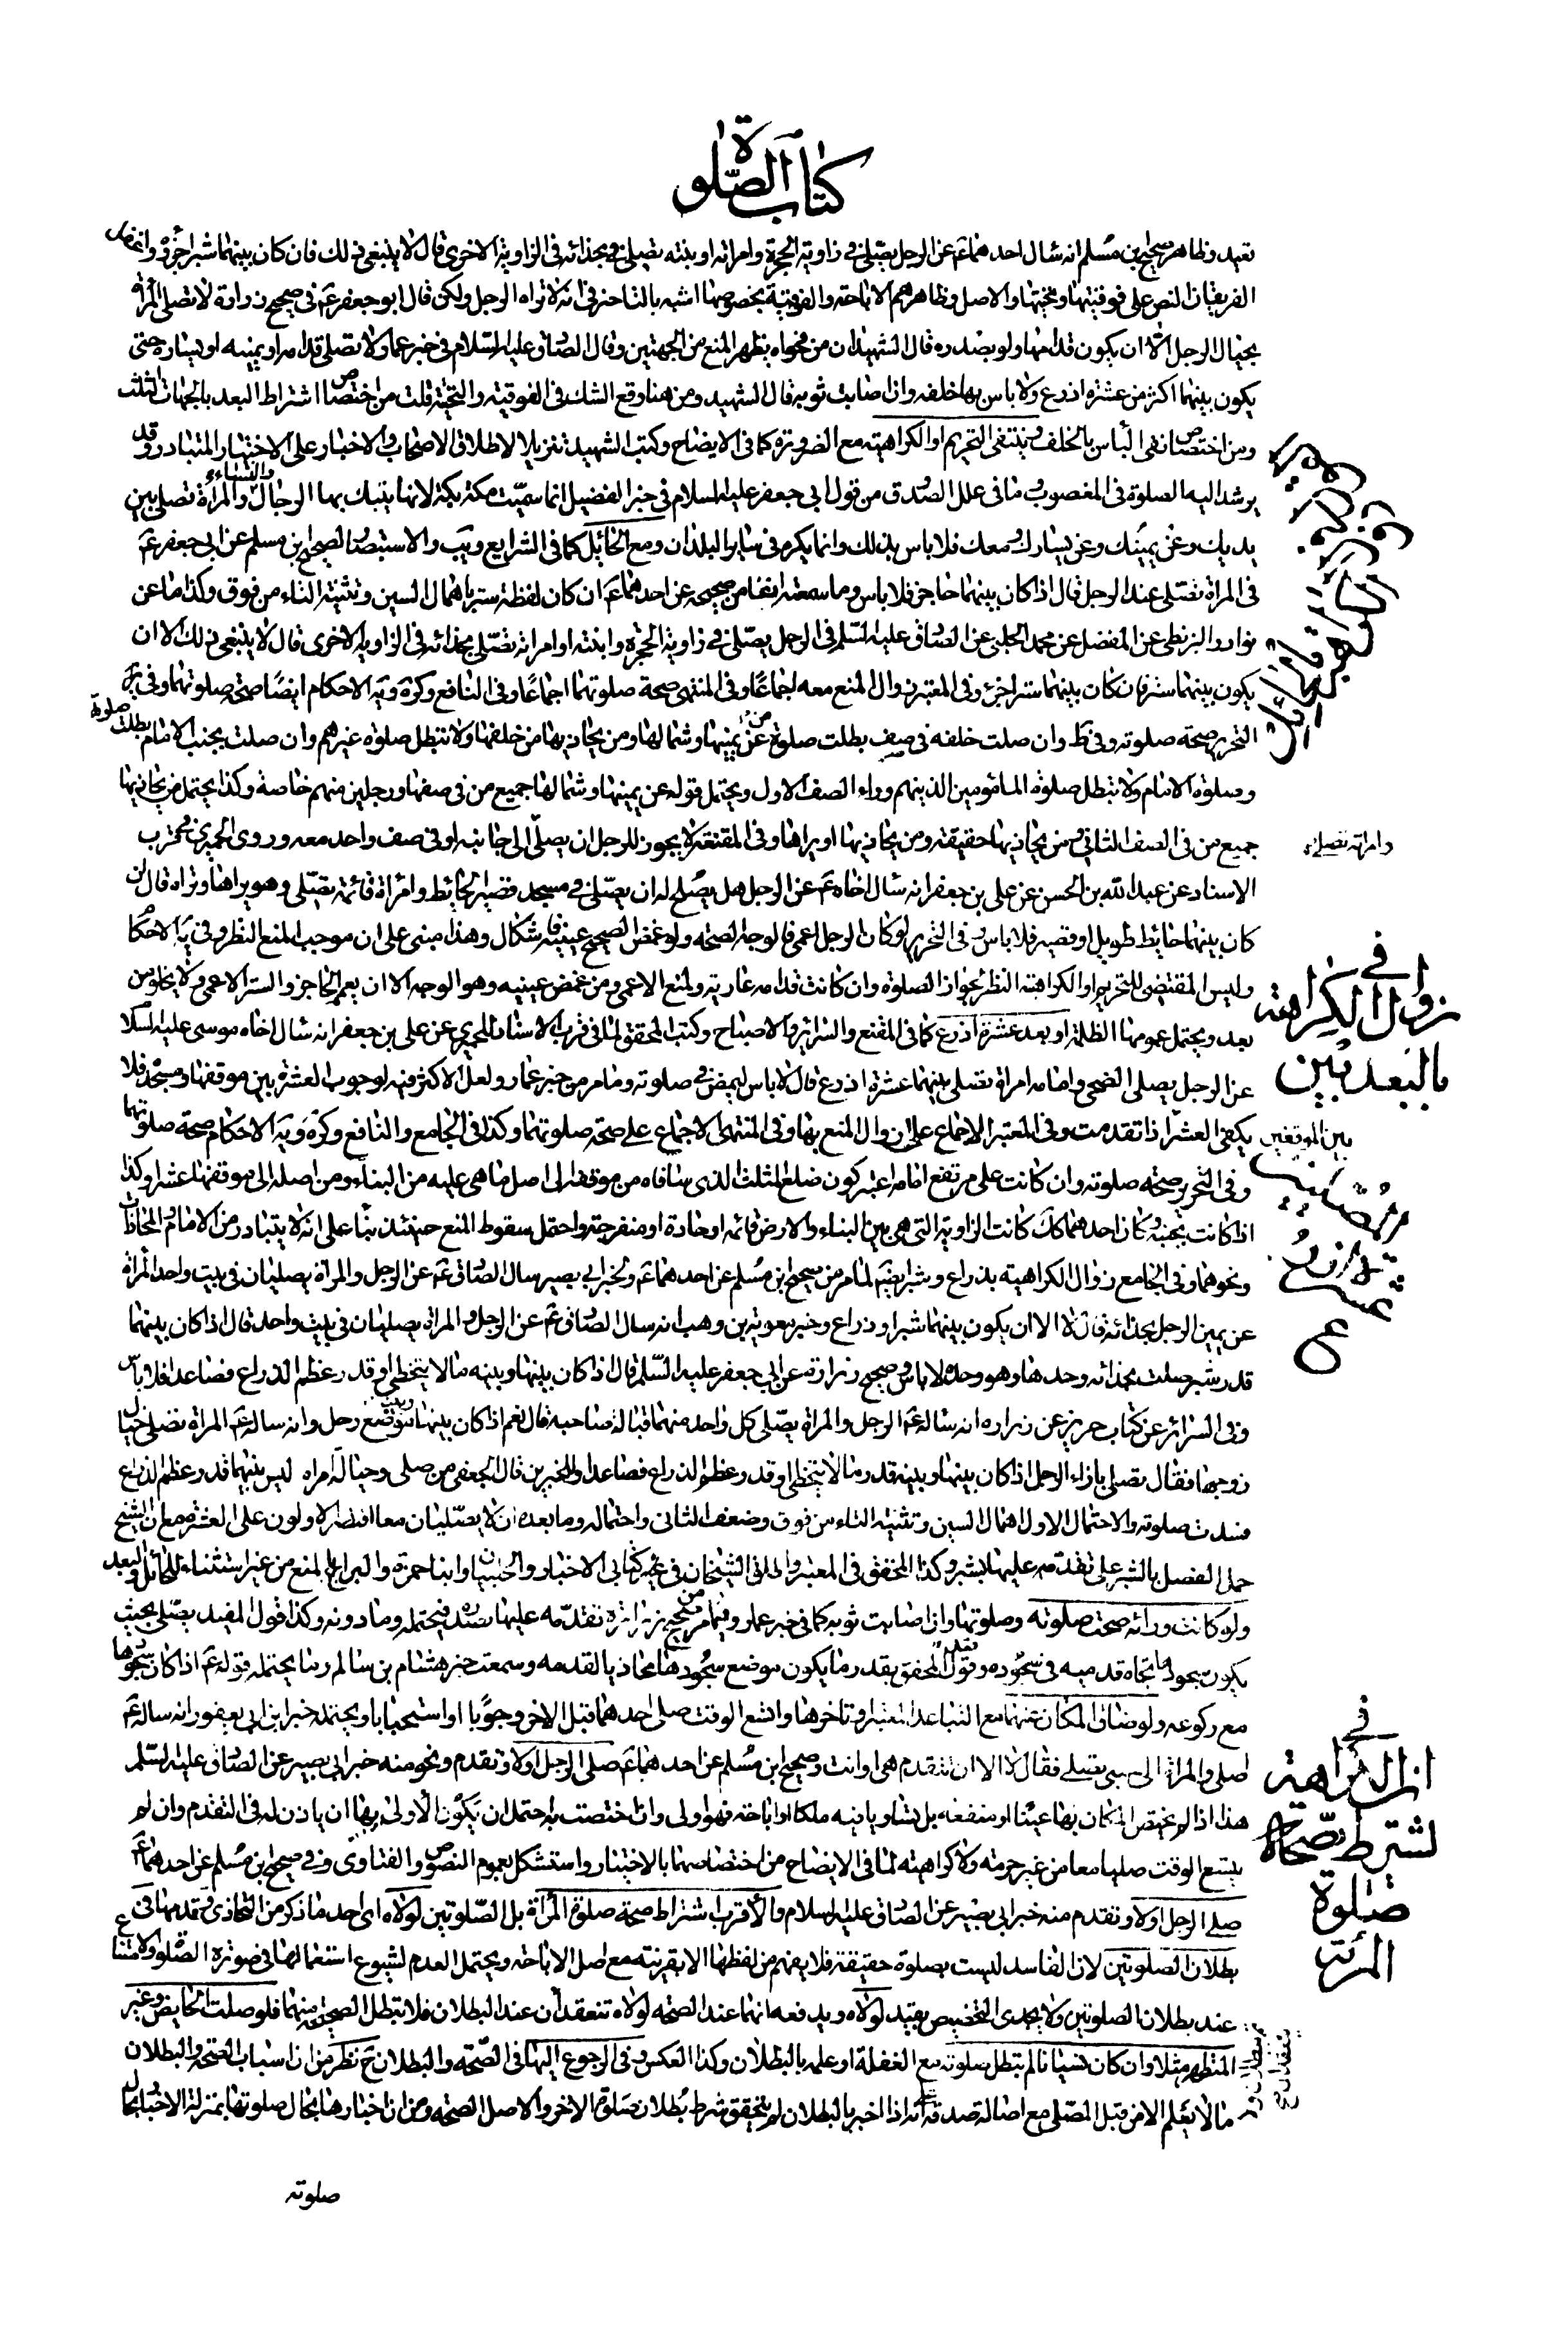 كتاب الصلوة
تعبد وظاهر صحيح بن مسلم انه سال احدهما ع عن الرجل يصلى في زاوية الحجرة وامراته او بنته تصلي بحذائه في الزاوية الاخرى قال لا ينبغي ذلك فان كان بينهما شبر اجزءه وانما خص
الفريقان النص على فوقيتها وتحتها والاصل وظاهرهم الاباحة والفوقية بخصوصها اشبه بالتاخر في انه لا تراه الرجل ولكن قال ابو جعفر ع في صحيح زرارة لا تصلى المراة
بحيال الرجل الا ان يكون قدامها ولو بصدره قال الشهيد ان من فحواه يظهر المنع من الجهتين وقال الصادق عليه السلام في خبر عمار لا تصلى قدامه او يمينه او يساره حتى
يكون بينهما اكثر من عشرة اذرع ولا باس بها خلفه وان اصابت ثوبه قال الشهيد ومن هنا وقع الشك في الفوقية والتحتية قلت من اختصاص اشتراط البعد بالجهات الثلث
ومن اختصاص نفى الباس بالخلف وينتفى التحريم او الكراهية مع الضرورة كما في الايضاح وكتب الشهيد تنزيلا لاطلاق الاصحاب والاخبار على الاختيار المتبادر وقد
يرشد اليه الصلوة في المغصوب وما في علل الصدوق من قول ابي جعفر عليه السلام في خبر الفضيل انما سميت مكة بكة لانها يتبك بها الرجال والنساء والمراة تصلى بين
يديك وعن يمينك وعن يسارك ومعك فلا باس بذلك وانما يكره في ساير البلدان ومع الحائل كما في الشرايع ويب والاستبصار لصحيح ابن مسلم عن ابي جعفر ع
في المراة تصلى عند الرجل قال اذا كان بينهما حاجز فلا باس وما سمعته انفا من صحيحه عن احدهما ع ان كان لفظة ستر باهمال السين وتثنية التاء من فوق وكذا ما عن
نوادر البزنطى عن المفضل عن محمد الحلبى عن الصادق عليه السلم في الرجل يصلى في زاوية الحجرة وابنته او امراته تصلى بحذائه في الزاوية الاخرى قال لا ينبغي ذلك الا ان
يكون بينهما ستر فان كان بينهما ستر اجزء وفى المعتبر زوال المنع معه اجماعا وفى المنتهى صحة صلوتهما اجماعا وفى النافع وكره ويه الاحكام ايضا صحة صلوتهما وفى
التحرير صحة صلوته وفى ط وان صلت خلفه في صف بطلت صلوة من عن يمينها وشمالها ومن يحاذيها من خلفها ولا تبطل صلوة غيرهم وان صلت بجنب الامام بطلت صلوتها
وصلوة الامام ولا تبطل صلوة المامومين الذين هم وراء الصف الاول ويحتمل قوله عن يمينها وشمالها جميع من في صفها ورجلين منهم خاصة وكذا يحتمل من يحاذيها
جميع من في الصف الثاني ومن يحاذيها حقيقة ومن يحاذيها او يراها وفى المقنعة لا يجوز للرجل ان يصلى الى جانبه او في صف واحد معه وروى الحميرى في قرب
وامراته تصلى
الاسناد عن عبد الله بن الحسن عن على بن جعفر انه سال اخاه ع عن الرجل هل يصلح له ان يصلى في مسجد قصير الحائط وامراة قائمة تصلى وهو يراها وتراه قال ان
كان بينهما حائط طويل او قصير فلا باس وفى التحرير لو كان الرجل اعمى فالوجه الصحة ولو غمض الصحيح عينيه فاشكال وهذا مبنى على ان موجب المنع النظر وفى يه الاحكام
وليس المقتضى للتحريم او الكراهية النظر لجواز الصلوة وان كانت قدامه عارية ولمنع الاعمى ومن غمض عينيه وهو الوجه الا ان يعم الحاجز والستر الاعمى ولا يخلو من
في زوال الكراهة بالبعد بين
بعد ويحتمل عمومها الظلمة او بعد عشرة اذرع كما في المقنع والسرائر والاصباح وكتب المحقق لما في قرب الاسناد للحميرى عن على بن جعفر انه سال اخاه موسى عليه السلام
عن الرجل يصلى الضحى وامامه امراة تصلى بينهما عشرة اذرع قال لا باس ليمض في صلوته وما مر من خبر عمار ولعل الاكثر فيه لوجوب العشرة بين موقفها ومسجده فلا
بين الموقفين
يكفى العشر اذا تقدمت وفى المعتبر الاجماع على زوال المنع بها وفى المنتهى الاجماع على صحة صلوتهما وكذا في الجامع والنافع وكره ويه الاحكام صحة صلوتهما
وفى التحرير صحة صلوته وان كانت على مرتفع امامه اعتبر كون ضلع المثلث الذى ساقاه من موقفه الى اصل ما هى عليه من البناء ومن اصله الى موقفها عشرا وكذا
المصليين عشر اذرع
اذا كانت بجنبه وكان احدهما كك كانت الزاوية التى هى بين البناء والارض قائمة او حادة او منفرجة واحتمل سقوط المنع حينئذ بناء على انه لا يتبادر من الامام والمحاذات
ونحوهما وفى الجامع زوال الكراهية بذراع وشبر ايضا لما مر من صحيح ابن مسلم عن احدهما ع ولخبر ابي بصير سال الصادق ع عن الرجل والمراة يصليان في بيت واحد المراة
عن يمين الرجل بحذائه قال لا الا ان يكون بينهما شبر او ذراع وخبر معوية بن وهب انه سال الصادق ع عن الرجل والمراة يصليان في بيت واحد قال اذا كان بينهما
قدر شبر صلت بحذائه وحدها وهو وحده لا باس وصحيح زرارة عن ابي جعفر عليه السلم قال اذا كان بينها وبينه ما لا يتخطى او قدر عظم الذراع فصاعدا فلا باس
وفى السرائر عن كتاب حريز عن زراره انه ساله ع الرجل والمراة يصلى كل واحد منهما قبالة صاحبه قال نعم اذا كان بينهما موضع رحل وانه ساله ع المراة تصلى حيال
زوجها فقال تصلى بازاء الرجل اذا كان بينها وبينه قدر ما لا يتخطى او قدر عظم الذراع فصاعدا وللخبرين قال الجعفى من صلى وحياله امراه ليس بينهما قدر عظم الذراع
فسدت صلوته والاحتمال الاول اهمال السين وتثنية التاء من فوق وضعف الثانى واحتماله وما بعده ان لا يصليان معا اقتصر الاولون على العشرة مع ان الشيخ
حمل الفصل بالشبر على تقدمه عليها بشبر وكذا المحقق في المعتبر واطلق الشيخان في غير كتابى الاخبار والحلبيان وابنا حمزة والبراج المنع من غير استثناء للحائل والبعد
ولو كانت ورائه صحت صلوته وصلوتها وان اصابت ثوبه كما في خبر عمار وفيما مر من صحيح زرارة تقدمه عليها بصدره فيحتمله وما دونه وكذا قول المفيد يصلى بحيث
يكون سجودها تجاه قدميه في سجوده وقول المحقق بقدر ما يكون موضع سجودها محاذيا لقدمه وسمعت خبر هشام بن سالم ربما يحتمله قوله ع اذا كان سجودها
مع ركوعه ولو ضاق المكان عنهما مع التباعد المعتبر او تاخرها واتسع الوقت صلى احدهما قبل الاخر وجوبا او استحبابا ويحتمله خبر ابن ابى يعفور انه ساله ع
اصلى والمراة الى جنبى تصلى فقال لا الا ان تتقدم هى او انت وصحيح ابن مسلم عن احدهما ع صلى الرجل اولا وتقدم ونحو منه خبر ابى بصير عن الصادق عليه السلم
في ان الكراهة تشترط بصحة صلوة المرئة
هذا اذا لم يختص المكان بها عينا او منفعة بل تساويا فيه ملكا او اباحة فهو اولى وان اختصت به احتمل ان يكون الاولى بها ان ياذن له في التقدم وان لم
يتسع الوقت صليا معا من غير حرمة ولا كراهية لما في الايضاح من اختصاصهما بالاختيار واستشكل بعموم النصوص والفتاوى وفى صحيح ابن مسلم عن احدهما ع
صلى الرجل اولا وتقدم منه خبر ابى بصير عن الصادق عليه السلام والاقرب اشتراط صحة صلوة المراة بل الصلوتين لولاه اى احد ما ذكر من التحاذى وتقدمها في
بطلان الصلوتين لان الفاسد ليست بصلوة حقيقة فلا يفهم من لفظها الا بقرينة مع اصل الاباحة ويحتمل العدم لشيوع استعمالها في صورة الصلوة ولامتناع
عند بطلان الصلوتين ولا يجدى التخصيص بقيد لولاه ويدفعه انهما عند الصحة لولاه تنعقدان عند البطلان فلا تبطل الصحيحة منهما فلو صلت الحايض وغير
المتطهر مثلا وان كان نسيانا لم تبطل صلوته مع الغفلة او علمه بالبطلان وكذا العكس وفى الرجوع اليها في الصحة والبطلان ح نظر من ان اسباب الصحة والبطلان
مما لا يعلم الا من قبل المصلى مع اصالة صدقه وانه اذا اخبر بالبطلان لم يتحقق شرط بطلان صلوة الاخر والاصل الصحة ومن ان اخبارها بحال صلوتها بمنزلة الاخبار بحال
صلوته